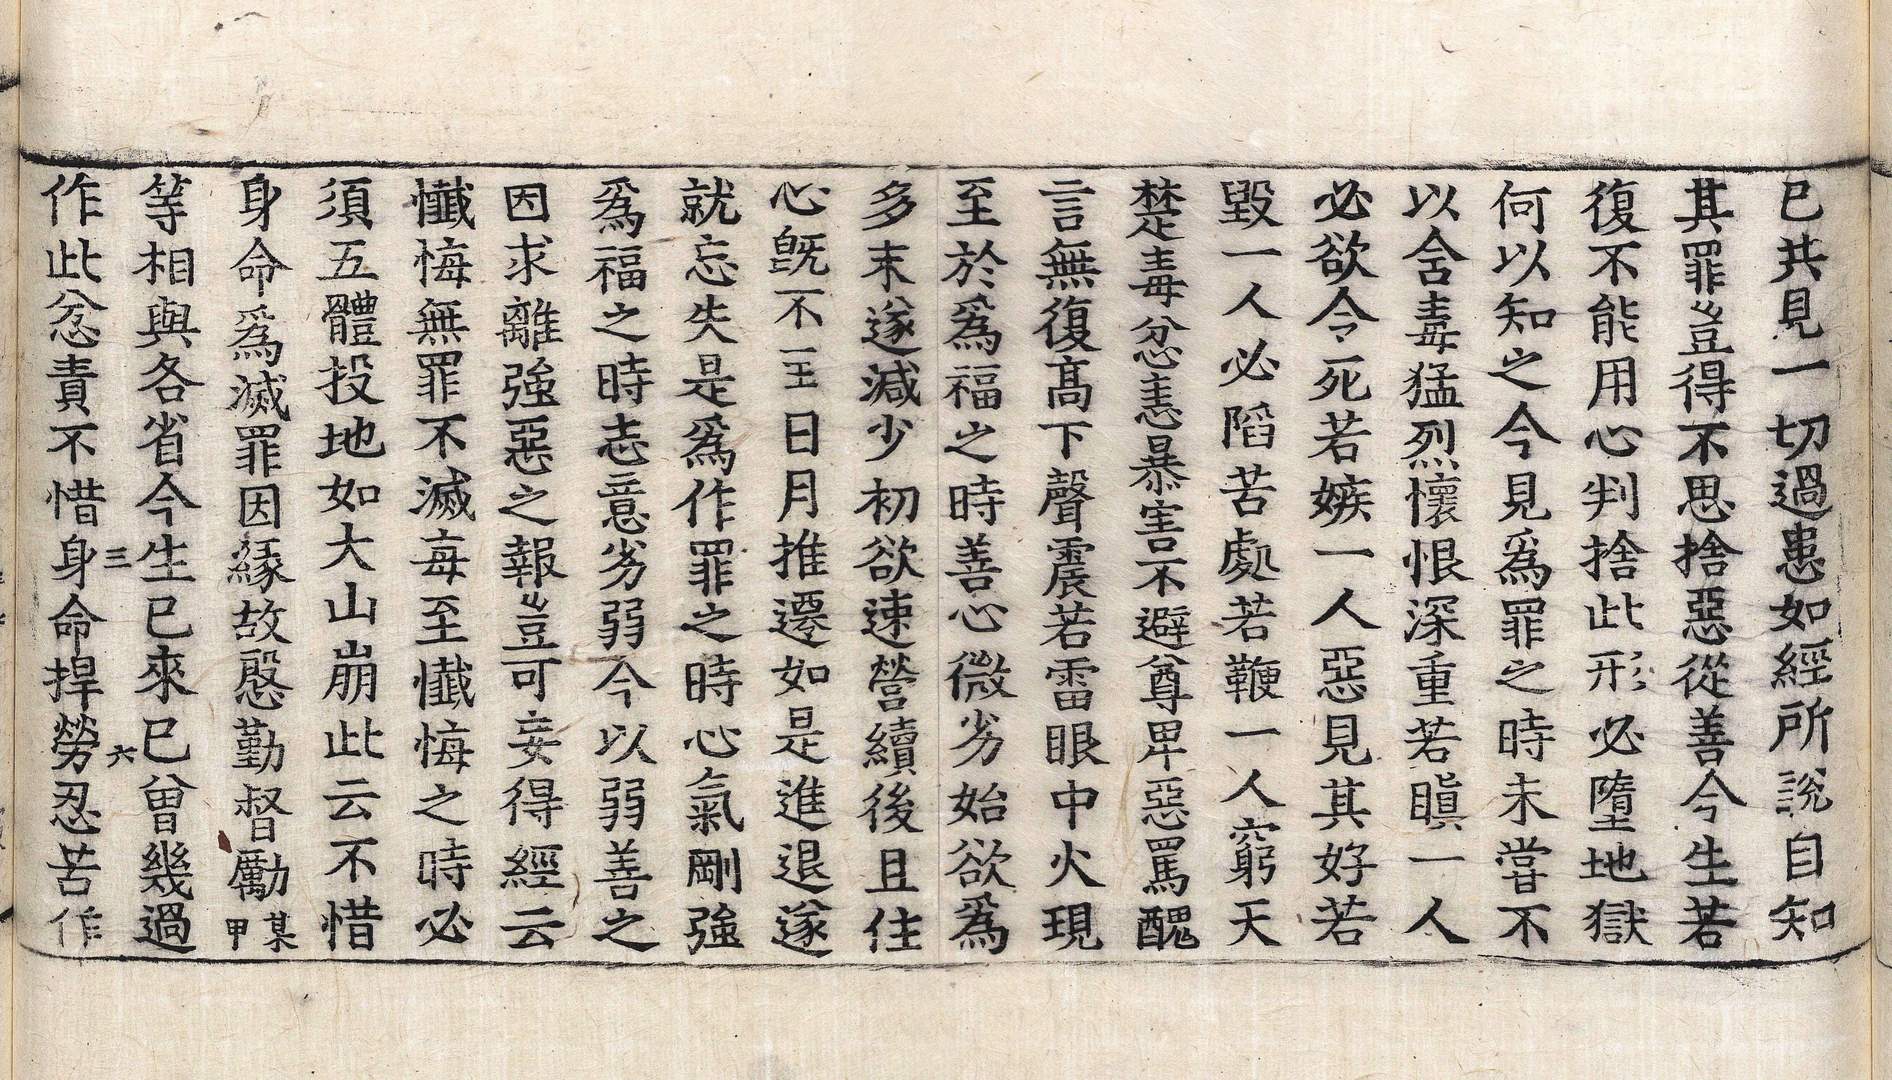 已共見一切過患如經所說自知
其罪豈得不思捨惡從善今生若
復不能用心判捨此形必墮地獄
何以知之今見爲罪之時未嘗不
以含毒猛烈懷恨深重若瞋一人
必欲令死若嫉一人惡見其好若
毀一人必陷苦處若鞭一人窮天
楚毒忿恚暴害不避尊卑惡罵醜
言無復高下聲震若雷眼中火現
至於爲福之時善心微劣始欲爲
多末遂減少初欲速營續後且住
心旣不至日月推遷如是進退遂
就忘失是爲作罪之時心氣剛強
爲福之時志意劣弱今以弱善之
因求離強惡之報豈可妄得經云
懺悔無罪不滅每至懺悔之時必
須五體投地如大山崩此云不惜
身命爲滅罪因緣故慇勤督勵某甲
等相與各省今生已來已曾幾過
三 六
作此忿責不惜身命捍勞忍苦作